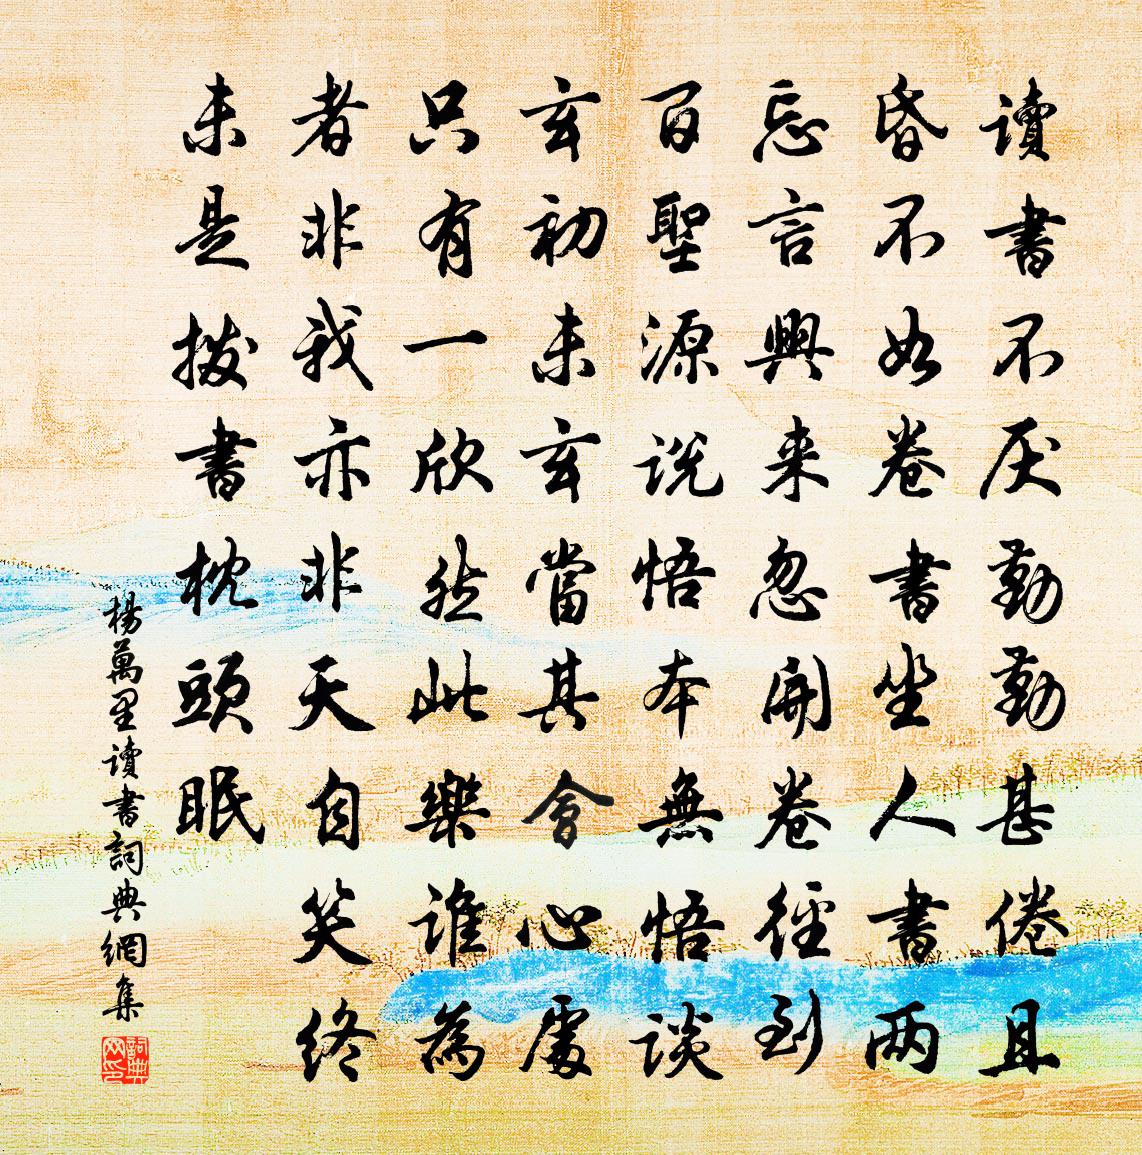 讀書不厌勤勤甚倦且
昏不如卷書坐人書两
忘言興来忽開卷徑到
百聖源説悟本無悟談
玄初未玄當其會心處
只有一欣然此樂誰為
者非我亦非天自笑終
未是撥書枕頭眠
楊萬里讀書詞典網集
詞典网印